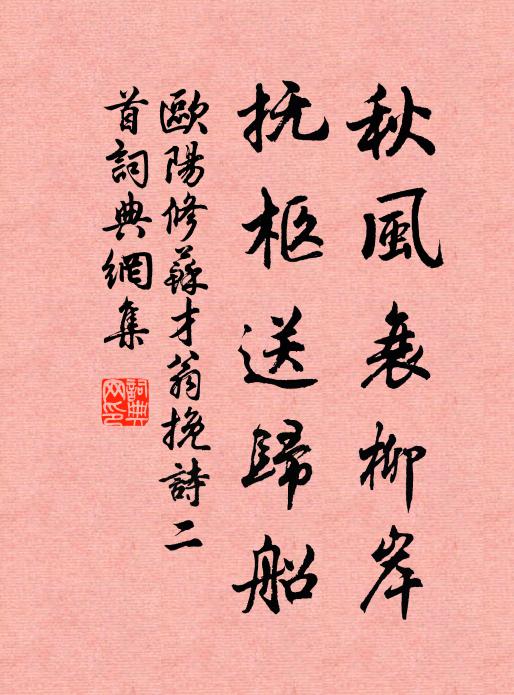 秋風衰柳岸
抚柩送歸船
歐陽修蘇才翁挽詩二
首詞典網集
詞典
网印